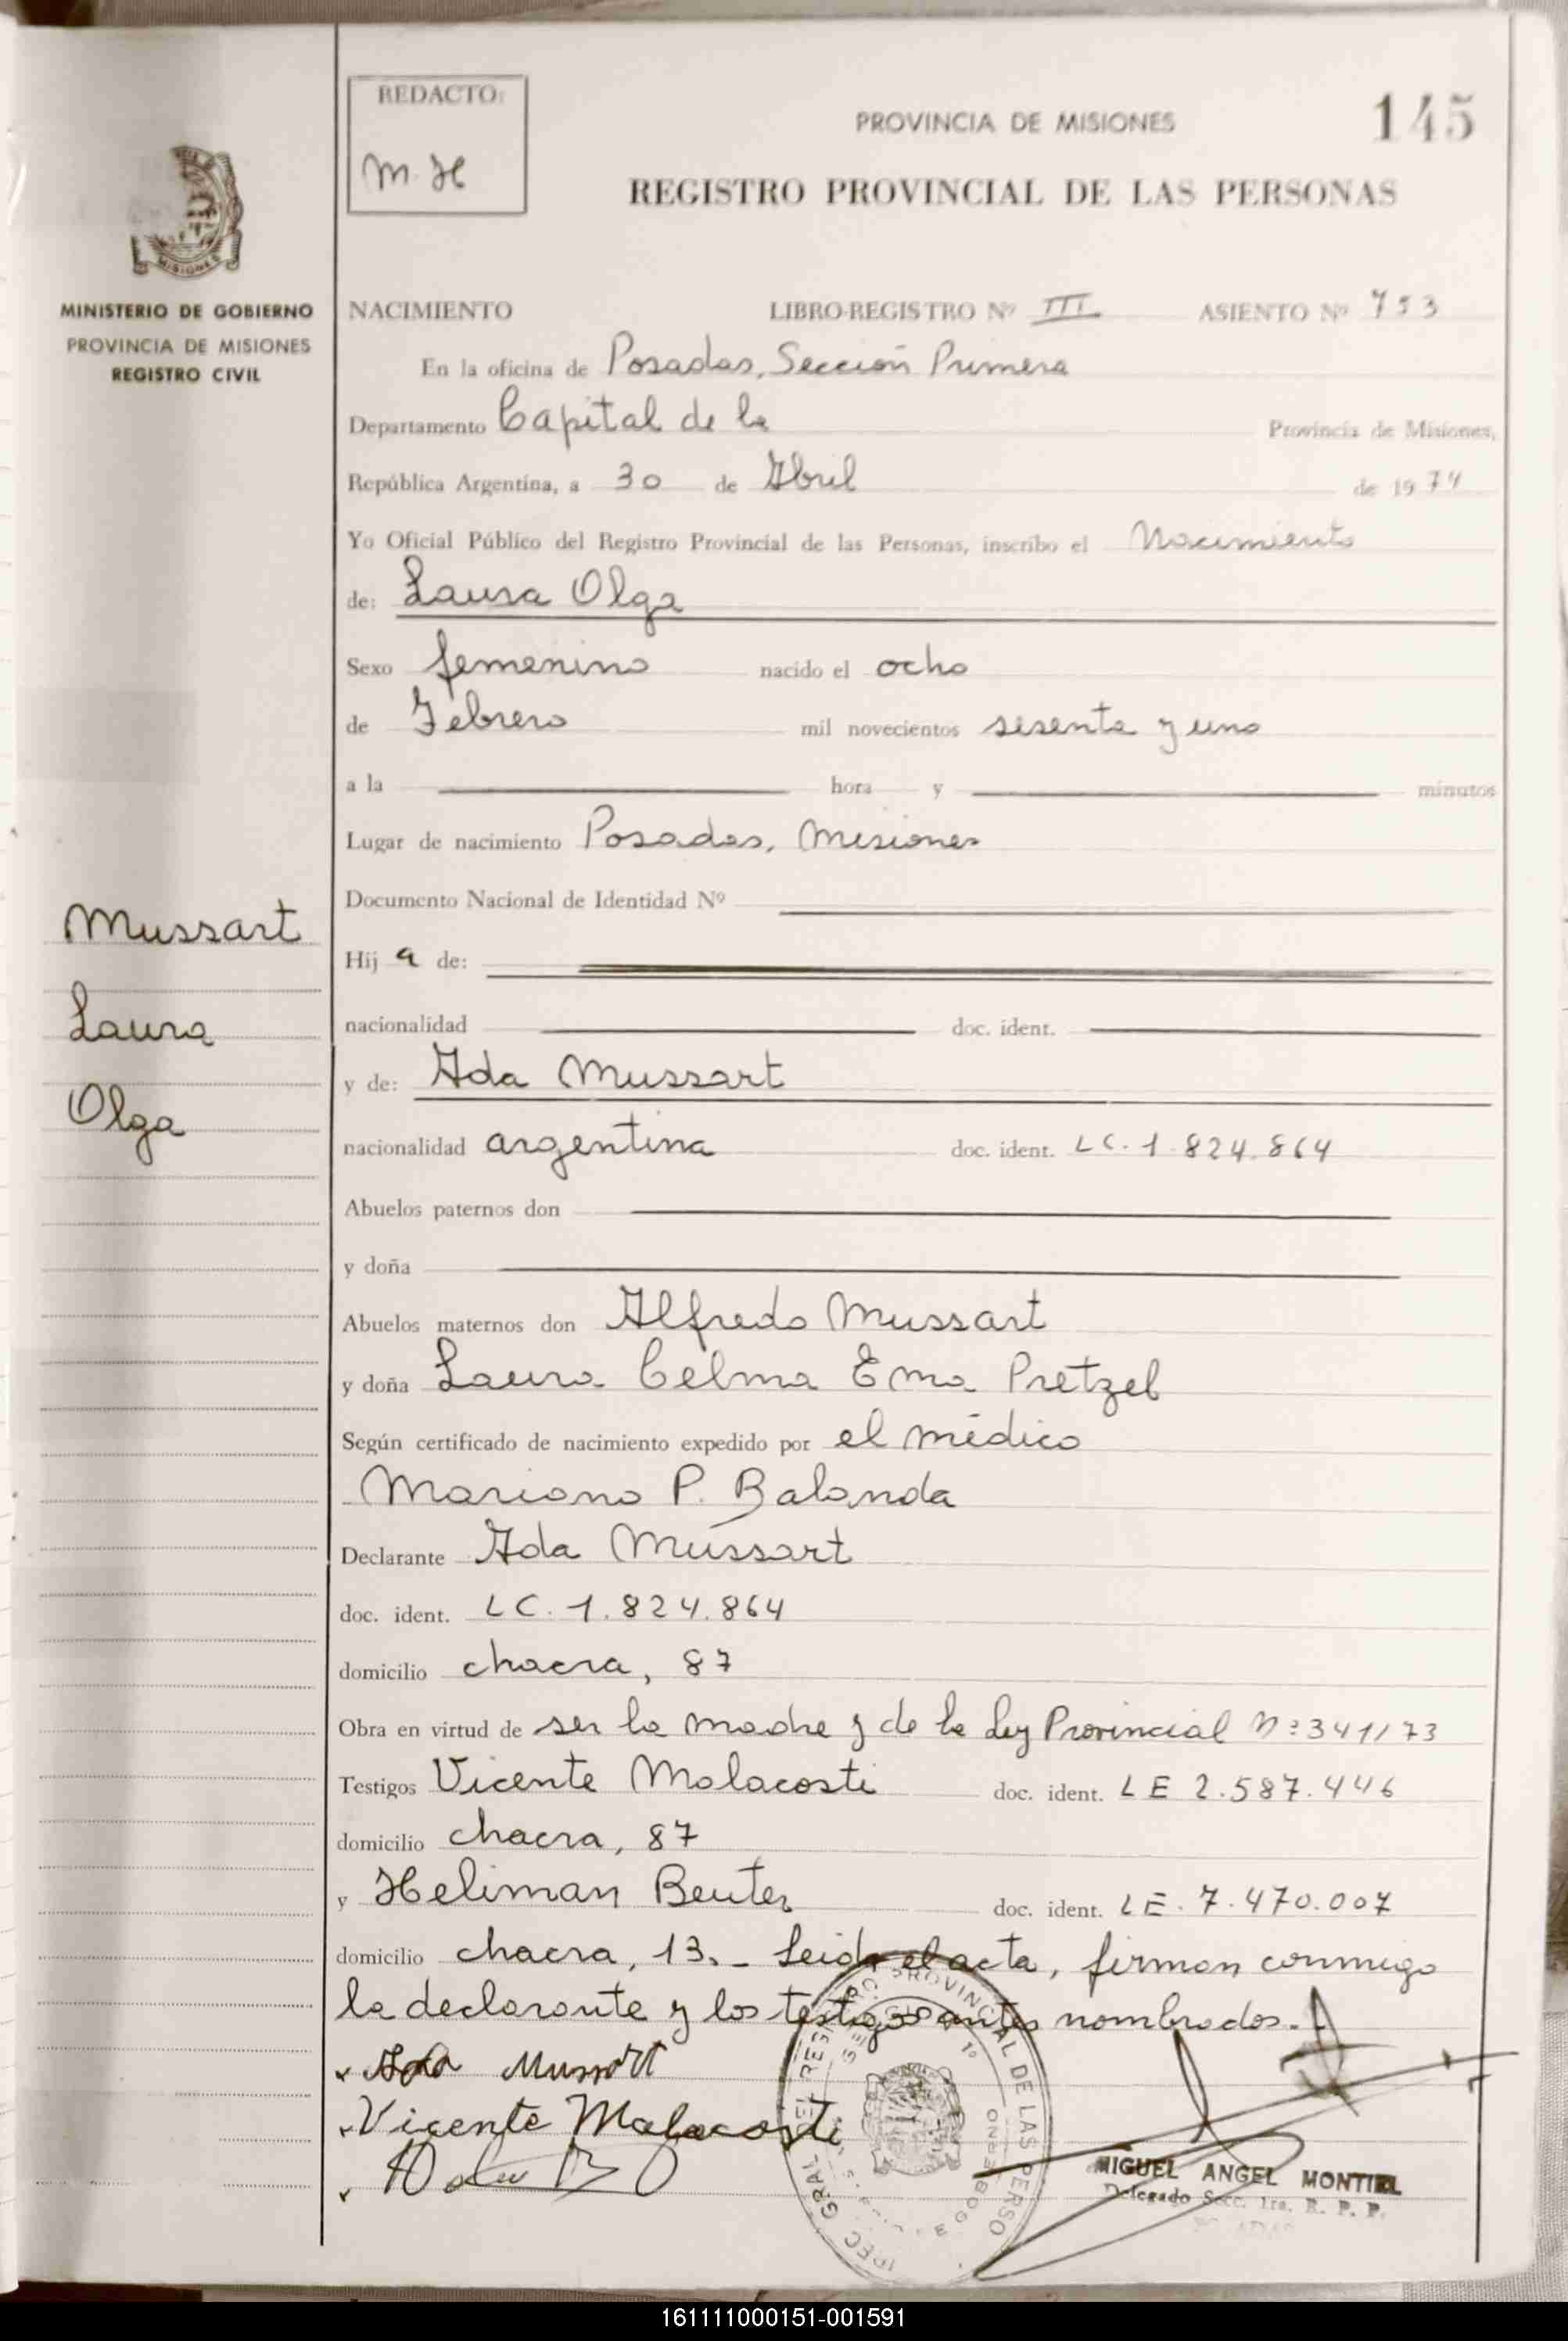 REDACTO:
M. H
PROVINCIA DE MISIONES
145
REGISTRO PROVINCIAL DE LAS PERSONAS
MISIONES
MINISTERIO DE GOBIERNO
PROVINCIA DE MISIONES
REGISTRO CIVIL
NACIMIENTO LIBRO-REGISTRO Nº III ASIENTO Nº 753
En la oficina de Posadas, Sección Primera
Departamento Capital de la Provincia de Misiones,
República Argentina, a 30 de Abril de 1974
Yo Oficial Público del Registro Provincial de las Personas, inscribo el Nacimiento
de: Laura Olga
Sexo femenino nacido el ocho
de Febrero mil novecientos sesenta y uno
a la hora y minutos
Lugar de nacimiento Posadas, Misiones
Documento Nacional de Identidad Nº
Mussart
Laura
Olga
Hij a de:
nacionalidad doc. ident.
y de: Ada Mussart
nacionalidad argentina doc. ident. LC. 1.824.864
Abuelos paternos don
y doña
Abuelos maternos don Alfredo Mussart
y doña Laura Celma Ema Pretzel
Según certificado de nacimiento expedido por el médico
Mariano P. Balanda
Declarante Ada Mussart
doc. ident. LC. 1.824.864
domicilio chacra, 87
Obra en virtud de ser la madre y de la Ley Provincial Nº 341/73
Testigos Vicente Malacosti doc. ident. LE 2.587.446
domicilio chacra, 87
y Heliman Beuter doc. ident. LE. 7.470.007
domicilio chacra, 13.- Leida el acta, firman conmigo
la declarante y los testigos antes nombrados.-
Ada Mussart
Vicente Malacosti
GRAL DEL REGISTRO PROVINCIAL DE LAS PERSO
MIGUEL ANGEL MONTIEL
Delegado Secc. 1ra. R. P. P.
161111000151-001591